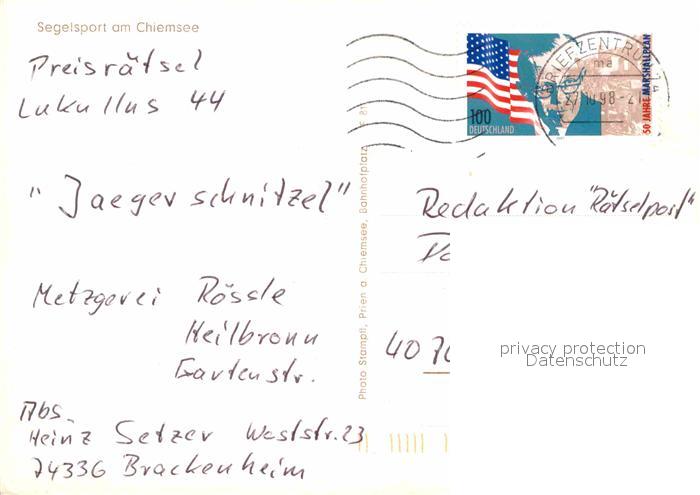 Segelsport am Chiemsee
Preisrätsel
Lukullus 44
"Jaegerschnitzel"
Metzgerei Rössle
Heilbronn
Gartenstr.
Abs.
Heinz Setzer Weststr. 23
74336 Brackenheim
Photo Stampfl, Prien a Chiemsee, Bahnhofplatz
100
DEUTSCHLAND
50 JAHRE MARSHALLPLAN
BRIEFZENTRUM 74
ma
27.10.98-21
Redaktion "Rätselpost"
40 70
privacy protection
Datenschutz